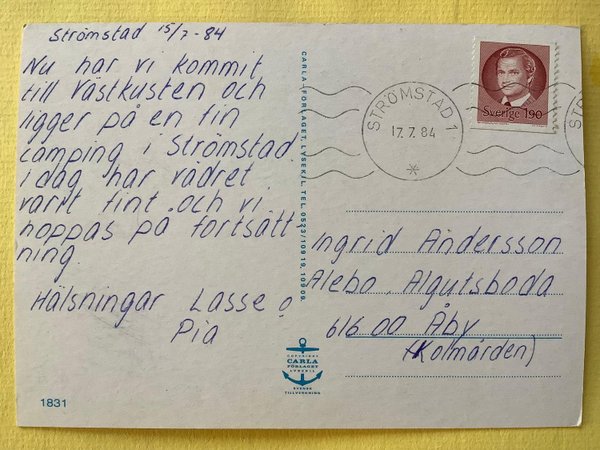 Strömstad 15/7-84
Nu har vi kommit
till Västkusten och
ligger på en fin
camping i Strömstad.
I dag har vädret
varit fint och vi
hoppas på fortsätt-
ning.
Hälsningar Lasse o
Pia
1831
CARLA-FÖRLAGET, LYSEKIL TEL. 0523/10919, 10909.
COPYRIGHT
CARLA
FÖRLAGET
LYSEKIL
SVENSK
TILLVERKNING
STRÖMSTAD 1
17.7.84
Sverige 190
Ingrid Andersson
Alebo, Algutsboda
616 00 Åby
(Kolmården)